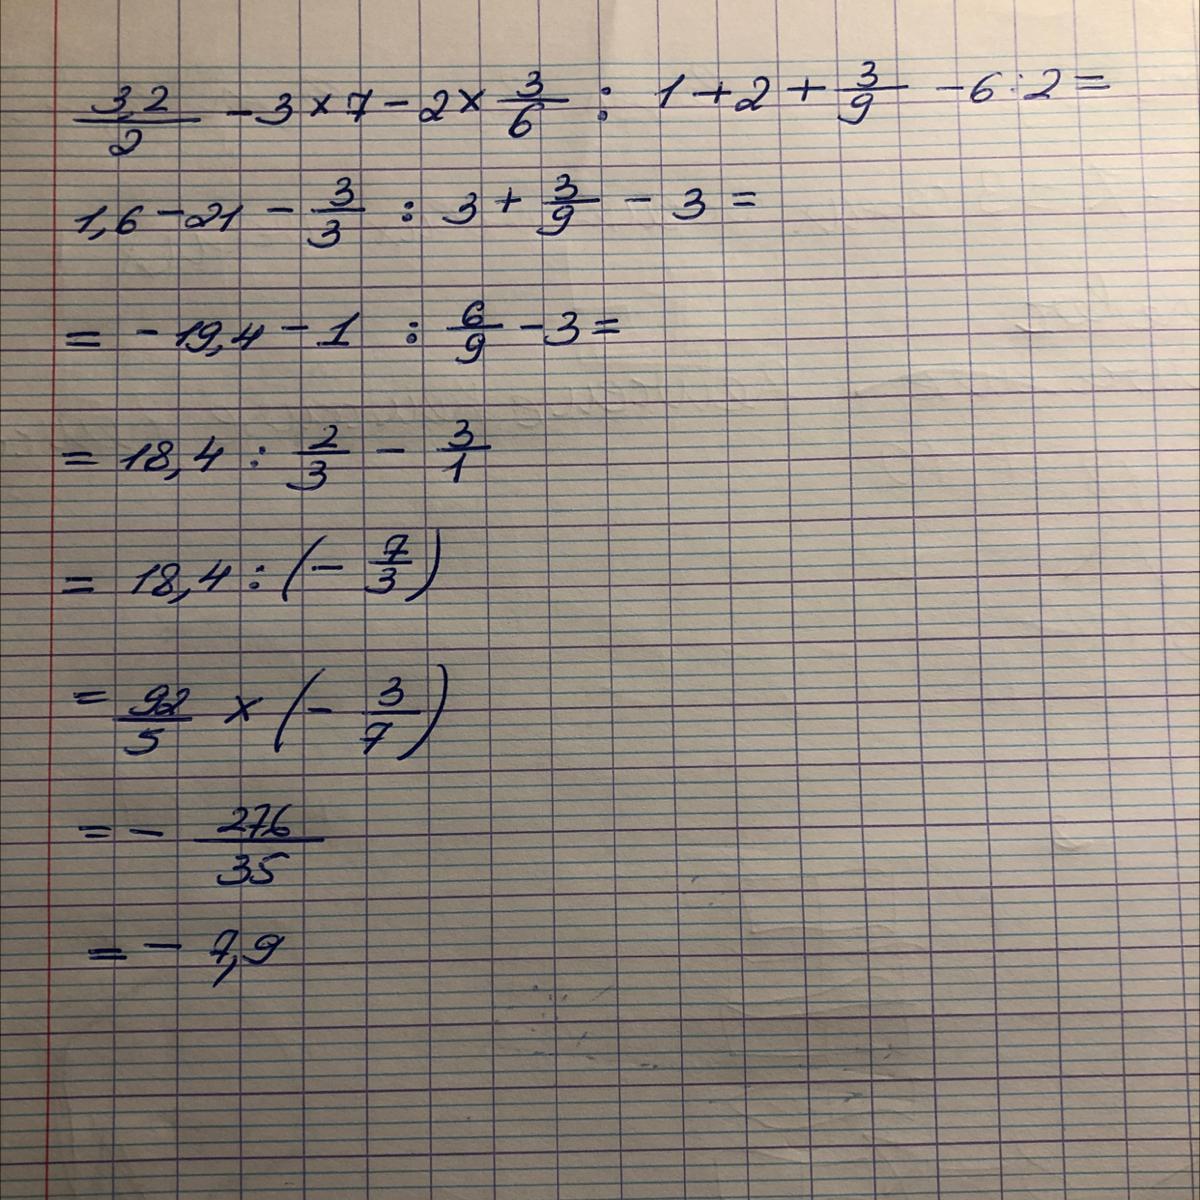 3,2/2 - 3 × 7 - 2 × 3/6 : 1 + 2 + 3/9 - 6 : 2 =
1,6 - 21 - 3/3 : 3 + 3/9 - 3 =
= - 19,4 - 1 : 6/9 - 3 =
= 18,4 : 2/3 - 3/1
= 18,4 : (- 7/3)
= 92/5 × (- 3/7)
= - 276/35
= - 7,9